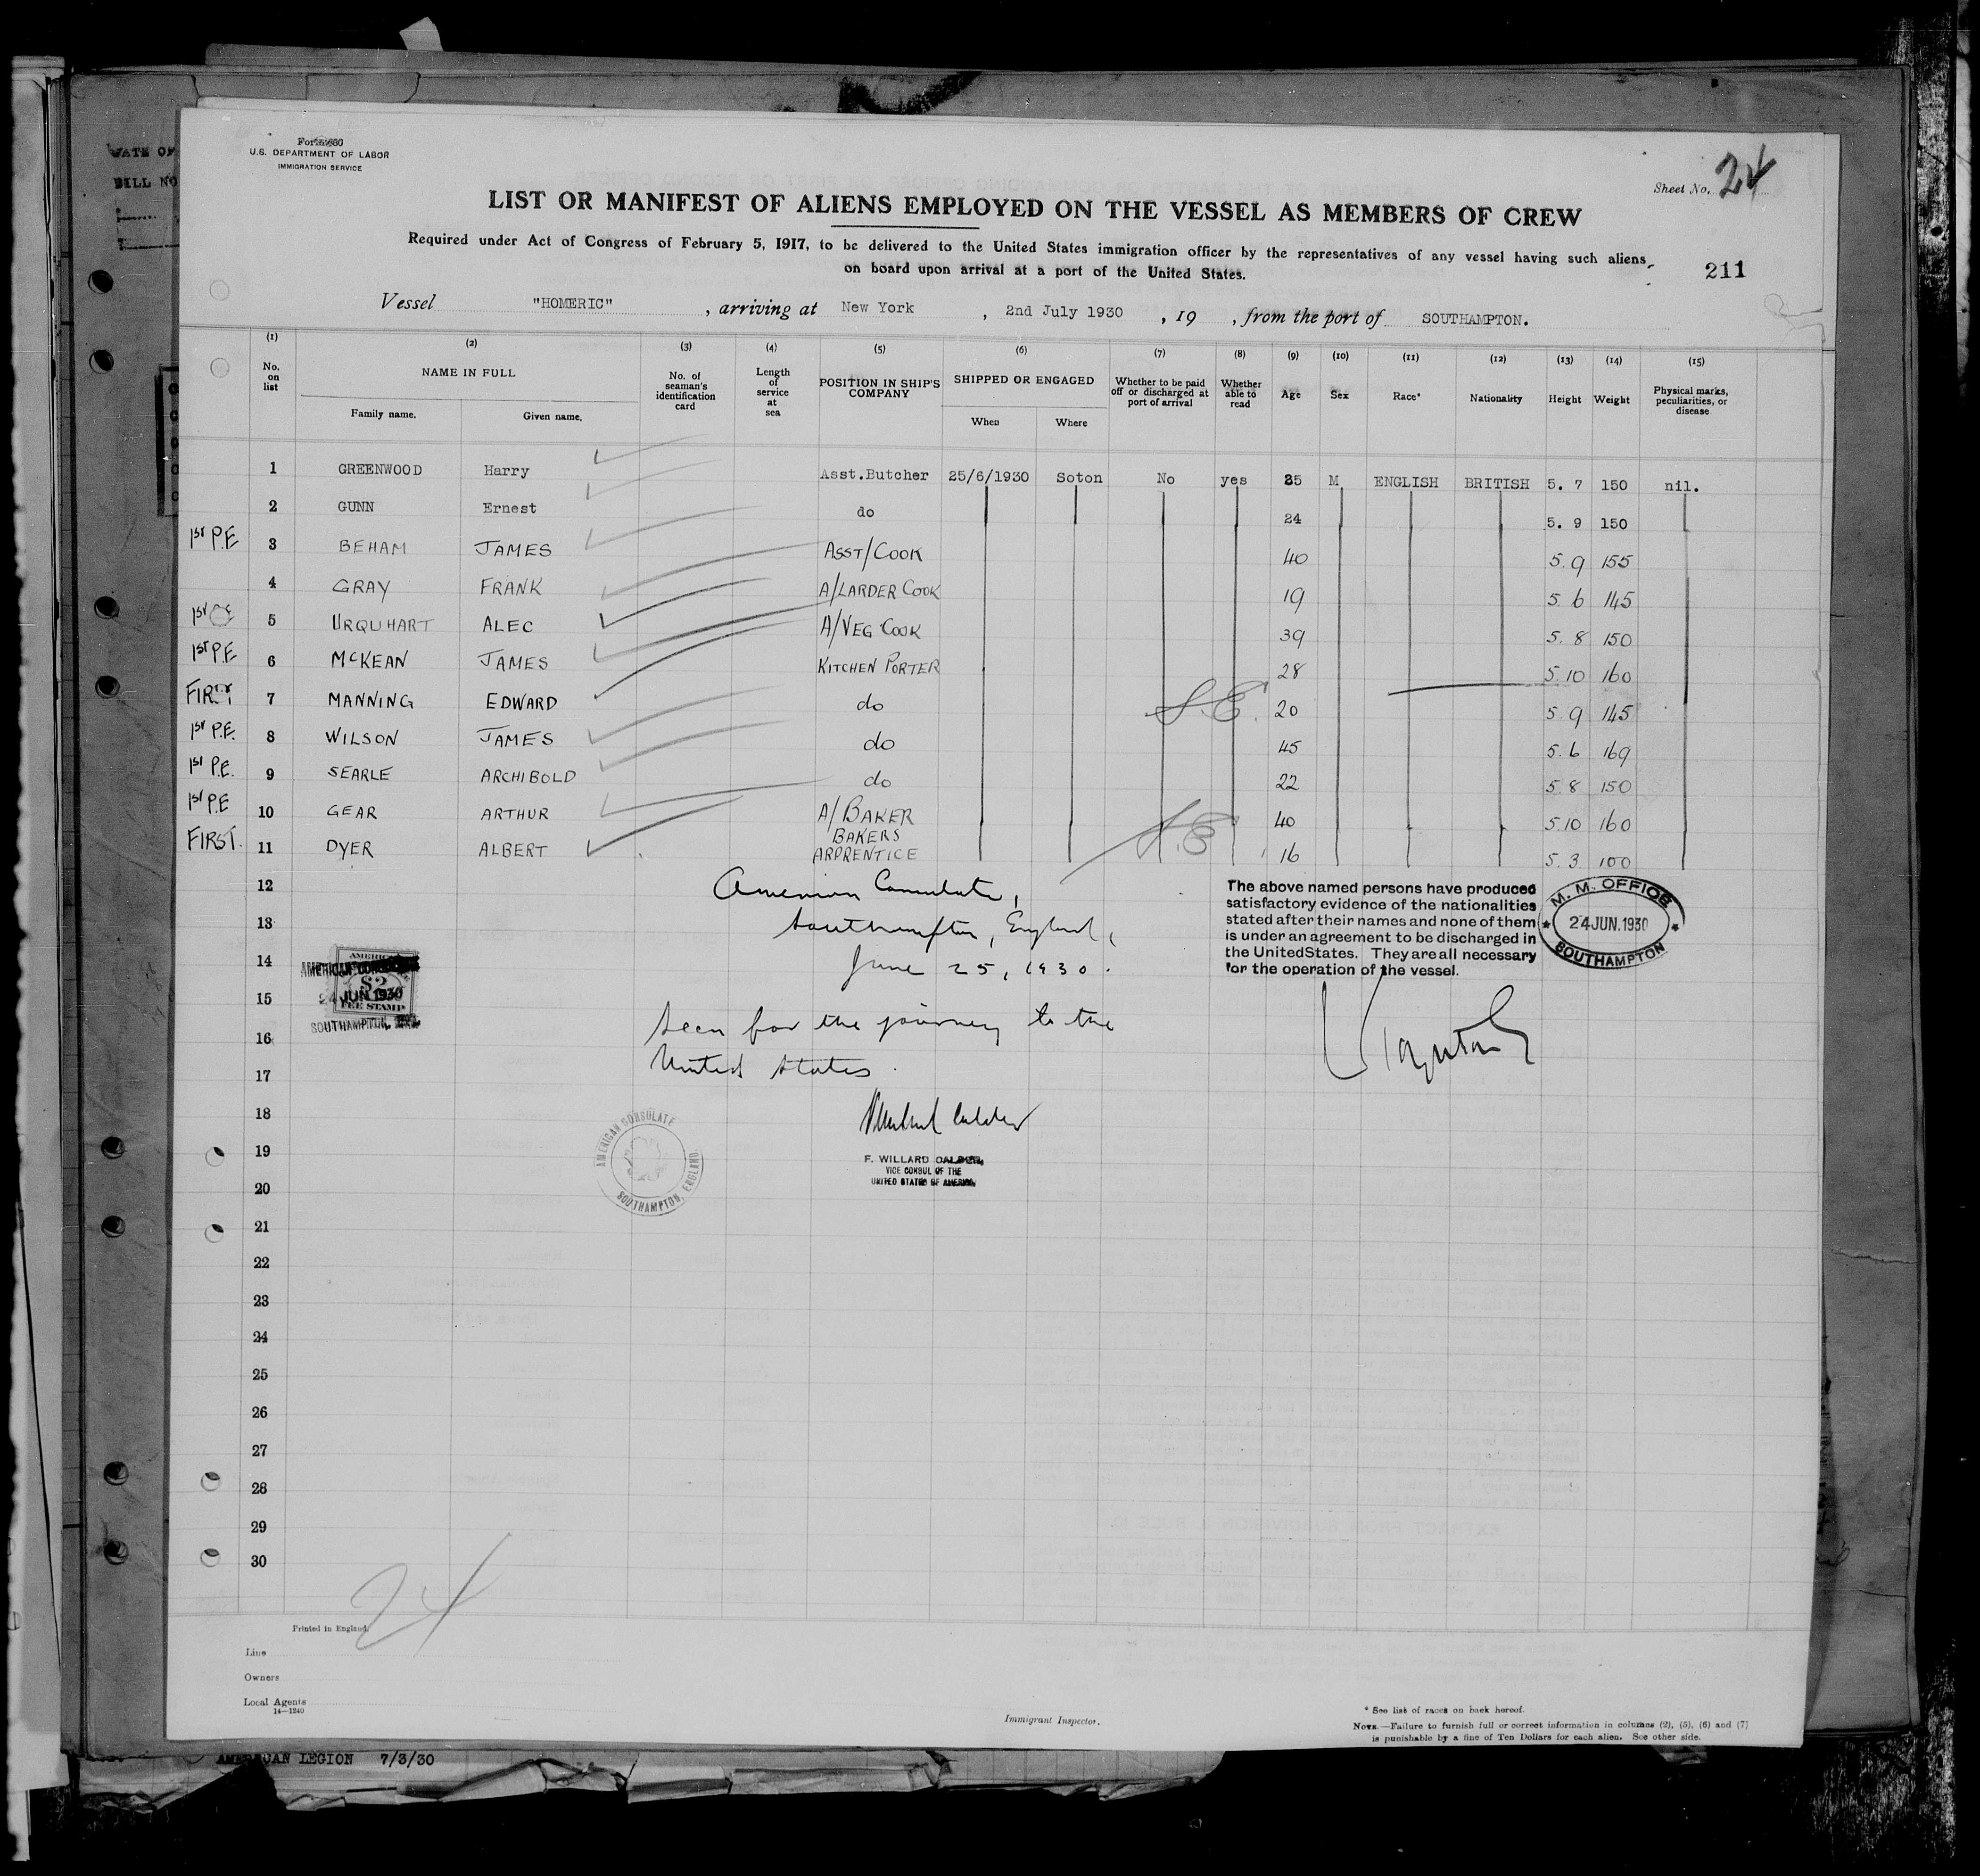 U.S. DEPARTMENT OF LABOR
IMMIGRATION SERVICE
Sheet No. 24
LIST OR MANIFEST OF ALIENS EMPLOYED ON THE VESSEL AS MEMBERS OF CREW
Required under Act of Congress of February 5, 1917, to be delivered to the United States immigration officer by the representatives of any vessel having such aliens
on board upon arrival at a port of the United States.
211
Vessel "HOMERIC", arriving at New York, 2nd July 1930, 19 , from the port of SOUTHAMPTON.
(1) (2) (3) (4) (5) (6) (7) (8) (9) (10) (11) (12) (13) (14) (15)
No. on list
NAME IN FULL
Family name. Given name.
No. of seaman's identification card
Length of service at sea
POSITION IN SHIP'S COMPANY
SHIPPED OR ENGAGED
When Where
Whether to be paid off or discharged at port of arrival
Whether able to read
Age Sex Race* Nationality Height Weight
Physical marks, peculiarities, or disease
1 GREENWOOD Harry Asst.Butcher 25/6/1930 Soton No yes 35 M ENGLISH BRITISH 5. 7 150 nil.
2 GUNN Ernest do 24 5. 9 150
1ST P.E 3 BEHAM JAMES ASST/COOK 40 5.9 155
4 GRAY FRANK A/LARDER COOK 19 5.6 145
1ST 5 URQUHART ALEC A/VEG COOK 39 5.8 150
1ST P.E 6 McKEAN JAMES KITCHEN PORTER 28 5.10 160
FIRST 7 MANNING EDWARD do S.E. 20 5 9 145
1ST P.E. 8 WILSON JAMES do 45 5.6 169
1ST P.E. 9 SEARLE ARCHIBOLD do 22 5 8 150
1ST P.E 10 GEAR ARTHUR A/BAKER 40 5.10 160
FIRST. 11 DYER ALBERT BAKERS APPRENTICE S.E 16 5.3 100
12
13
14
15
16
17
18
19
20
21
22
23
24
25
26
27
28
29
30
American Consulate,
Southampton, England,
June 25, 1930.
Seen for the journey to the
United States.
F. WILLARD CALDER,
VICE CONSUL OF THE
UNITED STATES OF AMERICA.
AMERICAN CONSULATE
SOUTHAMPTON, ENGLAND.
AMERICAN
$2
24 JUN 1930
FEE STAMP
SOUTHAMPTON,
The above named persons have produced
satisfactory evidence of the nationalities
stated after their names and none of them
is under an agreement to be discharged in
the United States. They are all necessary
for the operation of the vessel.
M. M. OFFICE
24 JUN. 1930
SOUTHAMPTON
24
Printed in England.
Line
Owners
Local Agents
14—1240
Immigrant Inspector.
* See list of races on back hereof.
NOTE.—Failure to furnish full or correct information in columns (2), (5), (6) and (7)
is punishable by a fine of Ten Dollars for each alien. See other side.
AMERICAN LEGION 7/3/30